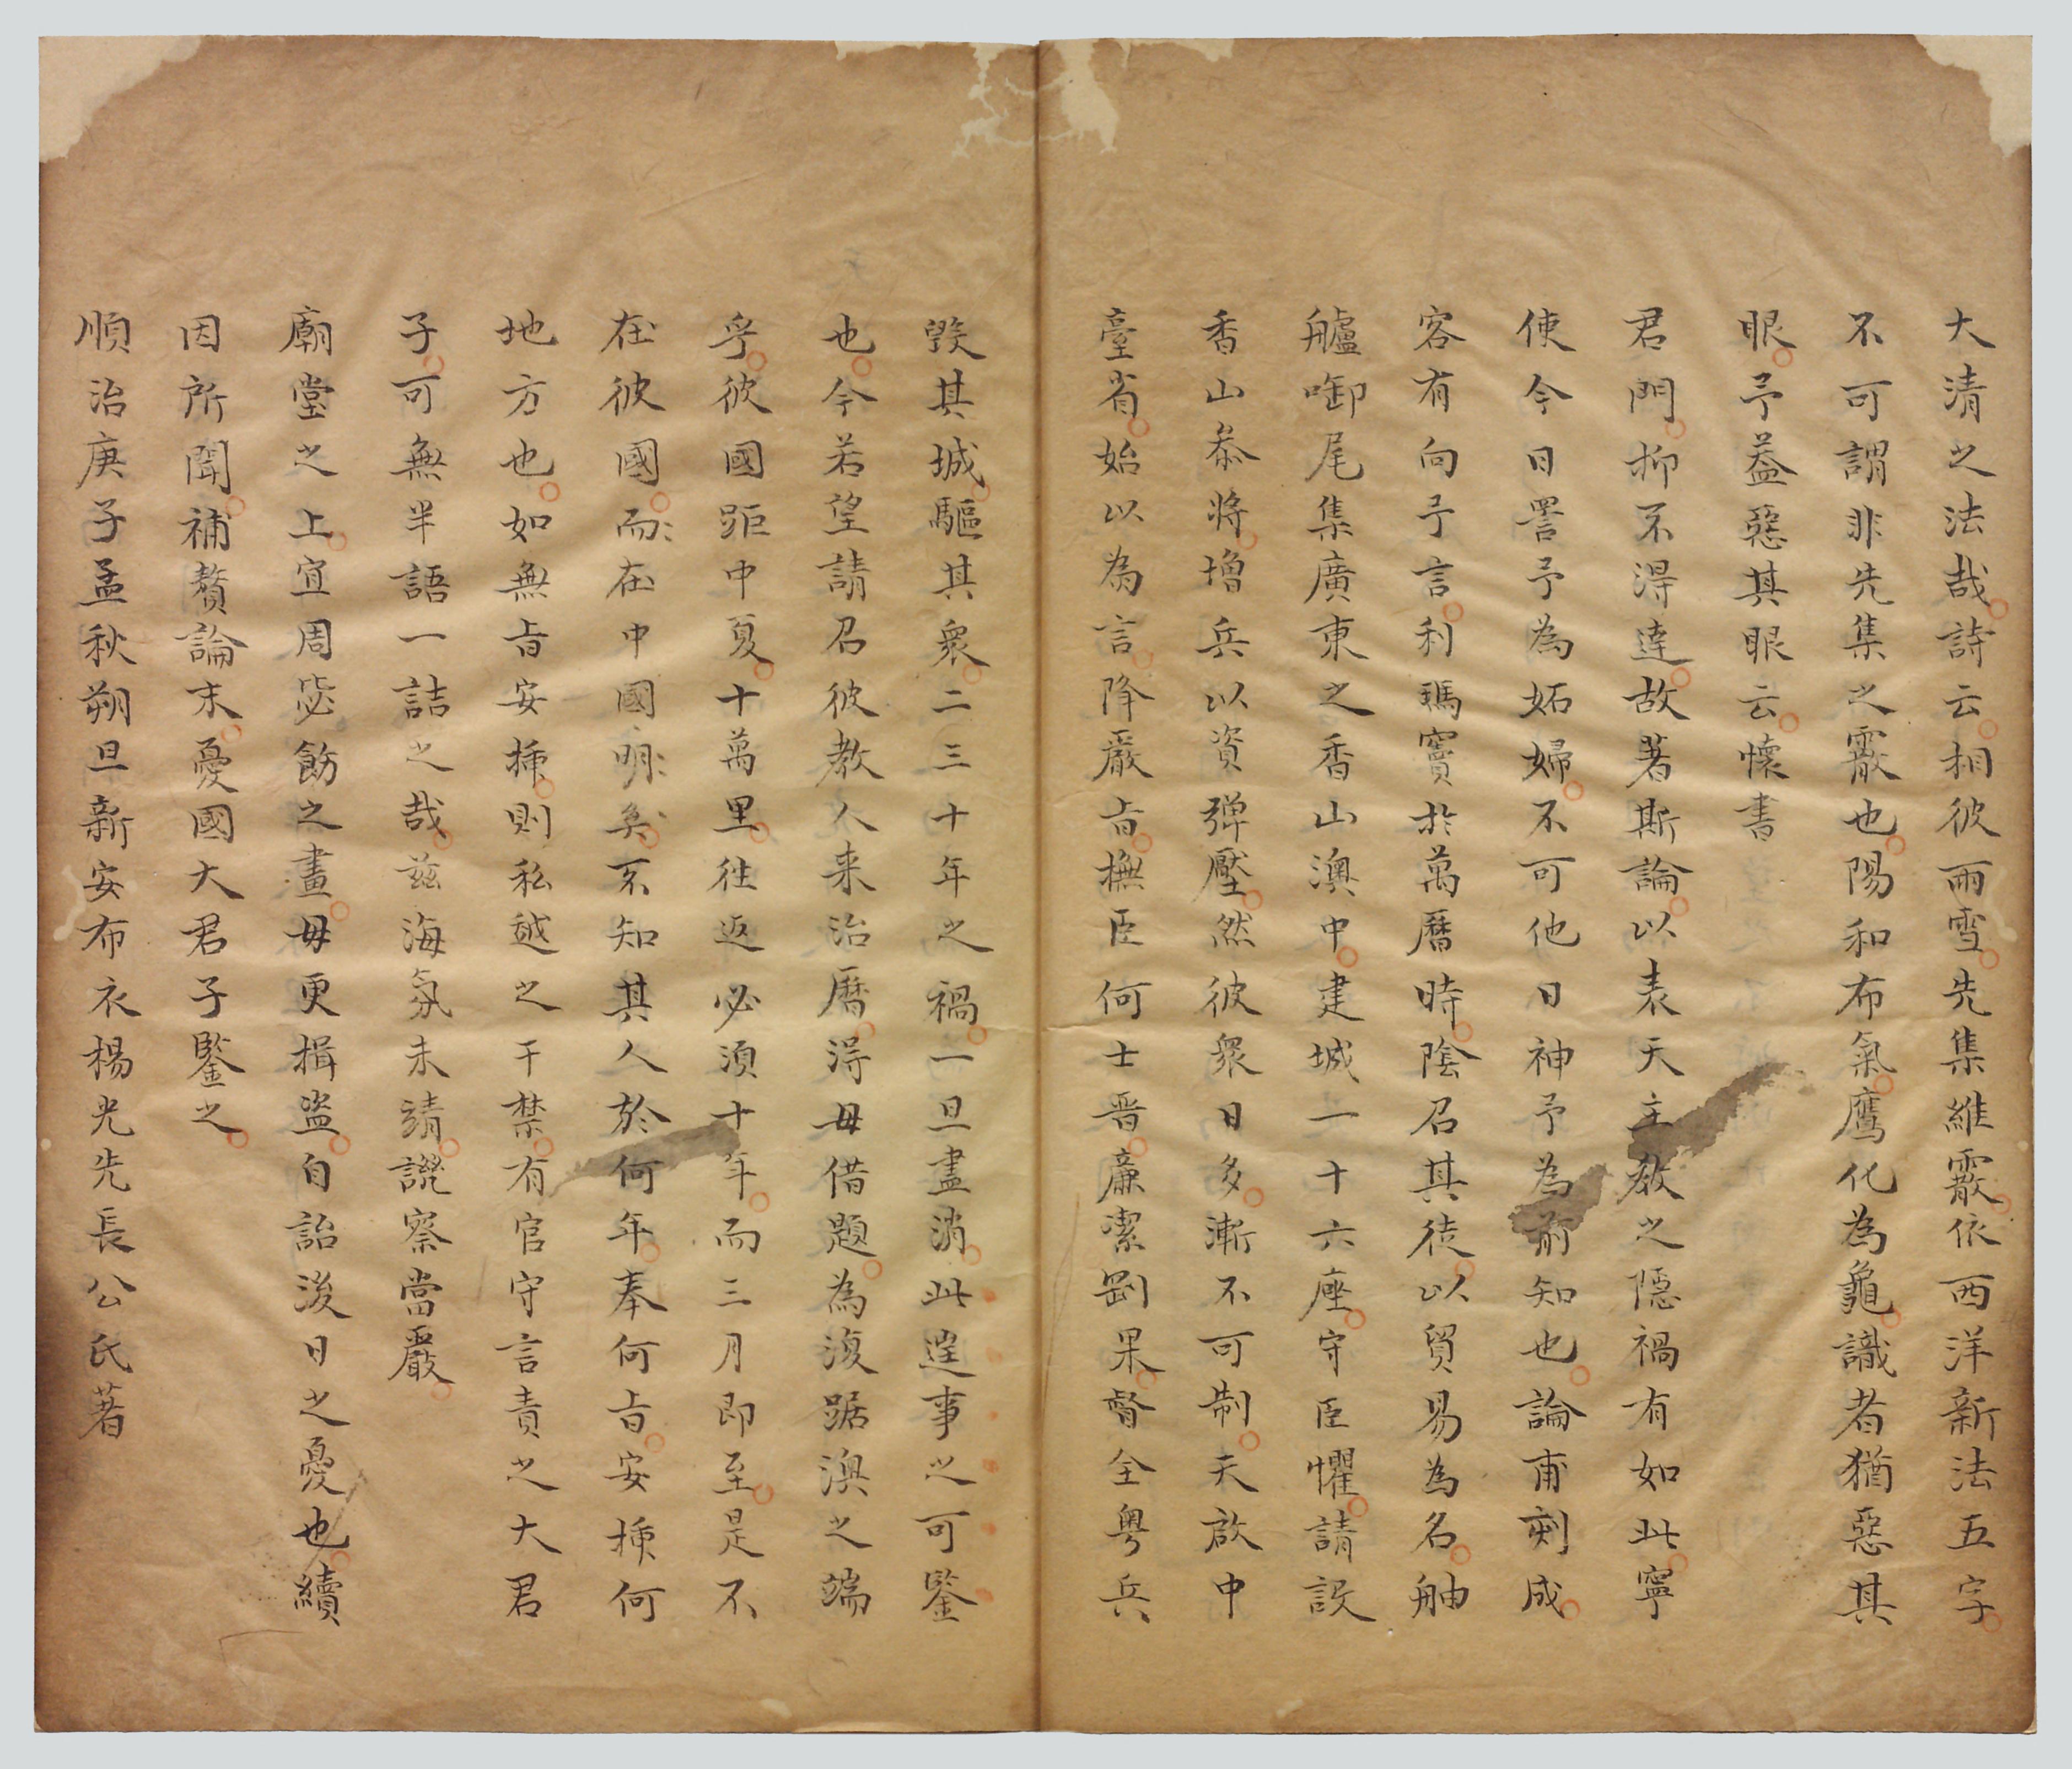 大清之法哉詩云相彼雨雪先集維霰依西洋新法五字
不可謂非先集之霰也陽和布氣鷹化為鳩識者猶惡其
眼予蓋惡其眼云懷書
君門抑不得達故著斯論以表天主教之隱禍有如此寧
使今日詈予為妬婦不可他日神予為前知也論甫刻成
客有向予言利瑪竇於萬曆時陰召其徒以貿易為名舳
艫啣尾集廣東之香山澳中建城一十六座守臣懼請設
香山叅將增兵以資彈壓然彼衆日多漸不可制天啟中
臺省始以為言降嚴旨撫臣何士晉廉潔剛果督全粵兵
毀其城驅其衆二三十年之禍一旦盡消此往事之可鑒
也今若望請召彼教人来治曆得毋借題為復踞澳之端
乎彼國距中夏十萬里往返必須十年而三月即至是不
在彼國而在中國明矣不知其人於何年奉何旨安揷何
地方也如無旨安揷則私越之干禁有官守言責之大君
子可無半語一詰之哉兹海氛未靖譏察當嚴
廟堂之上宜周毖飭之畫毋更揖盜自詒後日之憂也續
因所聞補贅論末憂國大君子鑒之
順治庚子孟秋朔旦新安布衣楊光先長公氏著